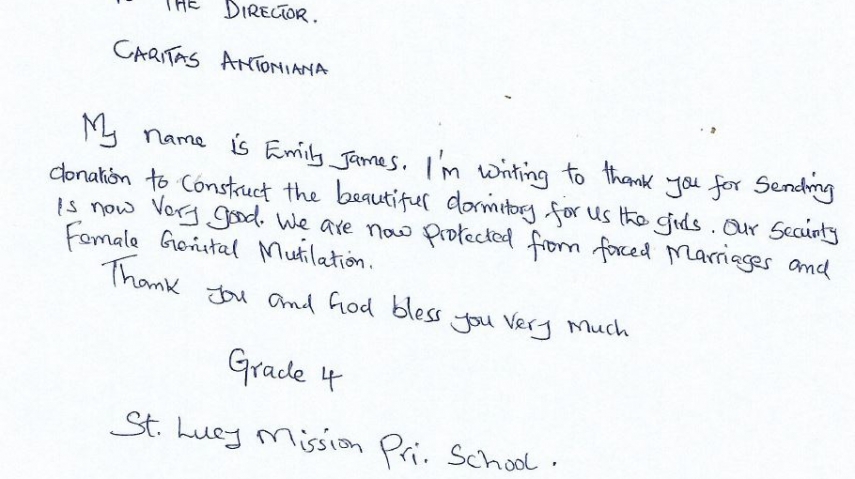 THE DIRECTOR.
CARITAS ANTONIANA
My name is Emily James. I'm writing to thank you for sending
donation to construct the beautiful dormitory for us the girls. Our Security
Is now very good. We are now protected from forced Marriages and
Female Genital Mutilation.
Thank you and God bless you very much
Grade 4
St. Lucy Mission Pri. School.